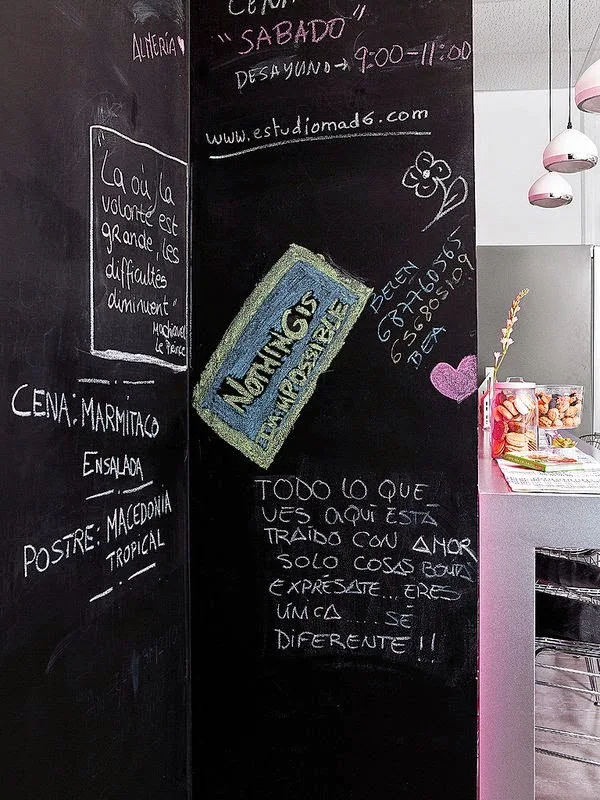 ALMERÍA
"La où la
volonté est
grande, les
difficultés
diminuent"
Machiavel
Le Prince
CENA: MARMITACO
ENSALADA
POSTRE: MACEDONIA
TROPICAL
CENA
"SABADO"
DESAYUNO → 9:00-11:00
www.estudiomad6.com
BELEN
687760565
636805109
BEA
NOTHING IS
IMPOSSIBLE
TODO LO QUE
VES AQUÍ ESTÁ
TRAÍDO CON AMOR
SOLO COSAS BONITAS
EXPRÉSATE... ERES
ÚNICA..... SÉ
DIFERENTE!!